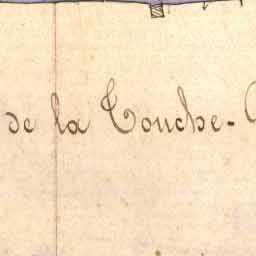 de la Touche-